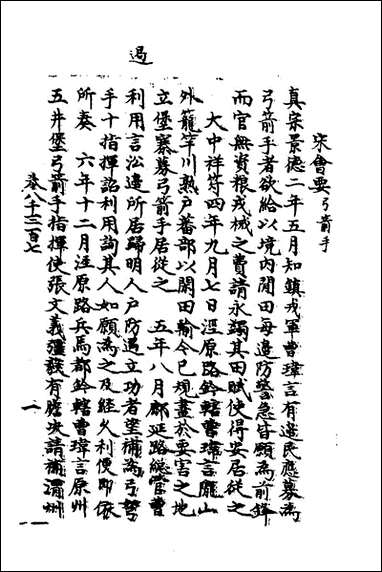 過
宋會要弓箭手
真宗景德二年五月知鎮戎軍曹瑋言有邊民應募為
弓箭手者欲給以境內閒田每邊防警急皆願為前鋒
而官無資糧戎械之費請永蠲其田賦使得安居從之
大中祥苻四年九月七日涇原路鈐轄曹瑋言隴山
外籠竿川熟戶蕃部以閑田輸令已規畫於要害之地
立堡寨募弓箭手居從之　五年八月鄜延路總管曹
利用言沿邊所居歸明人戶防遏立功者望補為弓弩
手十指揮詔利用詢其人如願為之及經久利便即依
所奏　六年十二月涇原路兵馬都鈐轄曹瑋言原州
五井堡弓箭手指揮使張文義彊毅有膽決請補渭州
卷八千三百七
一